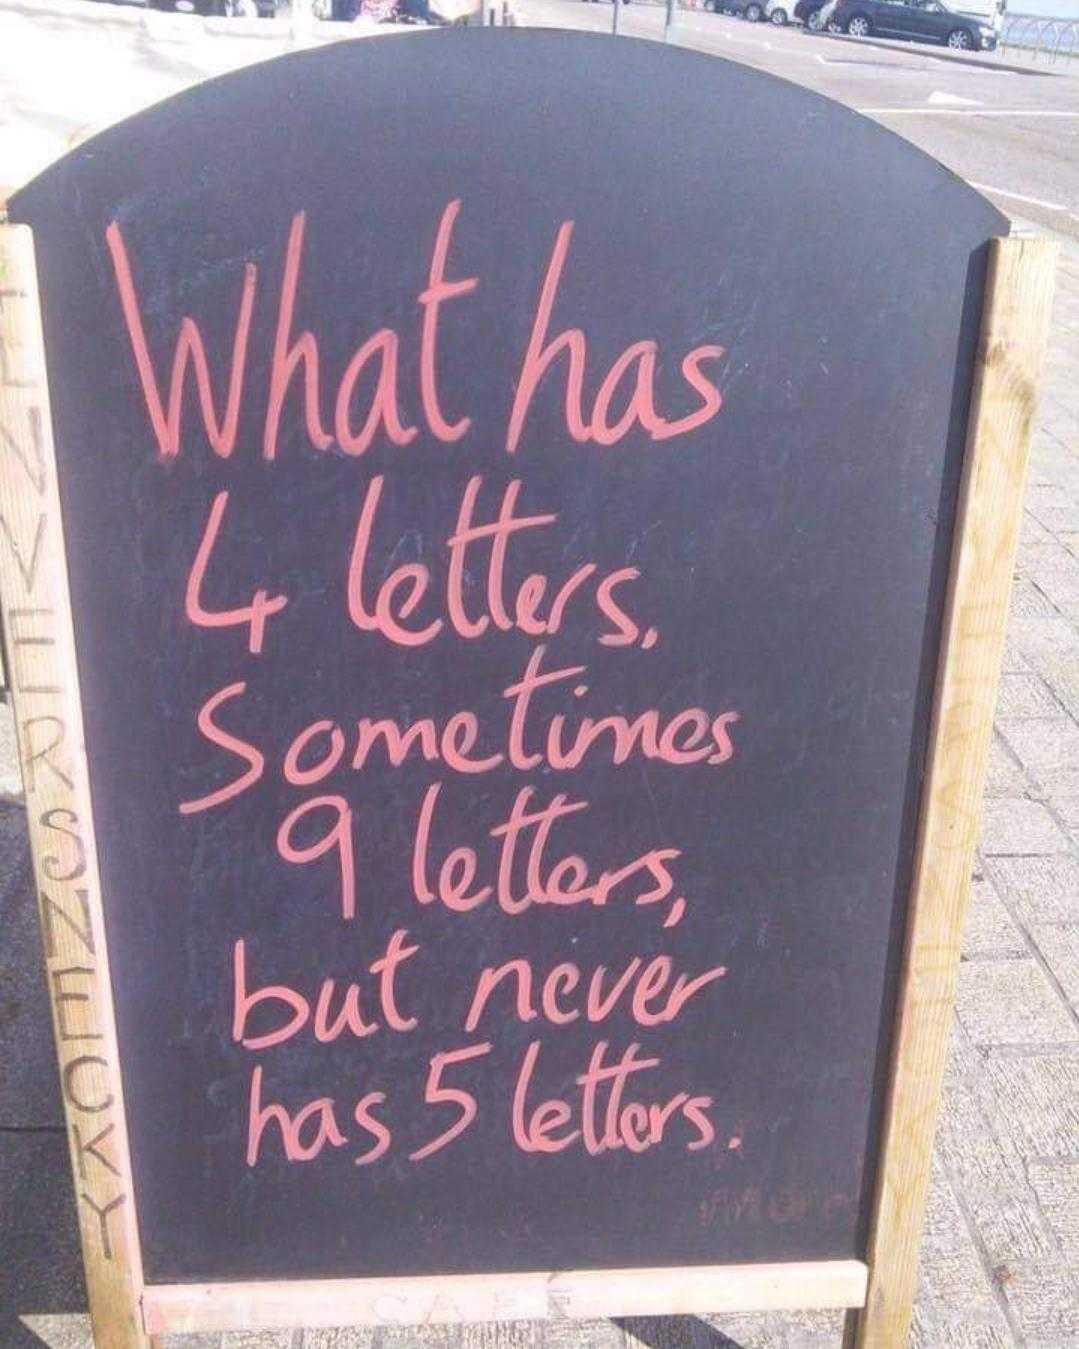 What has
4 letters,
Sometimes
9 letters,
but never
has 5 letters.
INVERSNECKY
CAFE